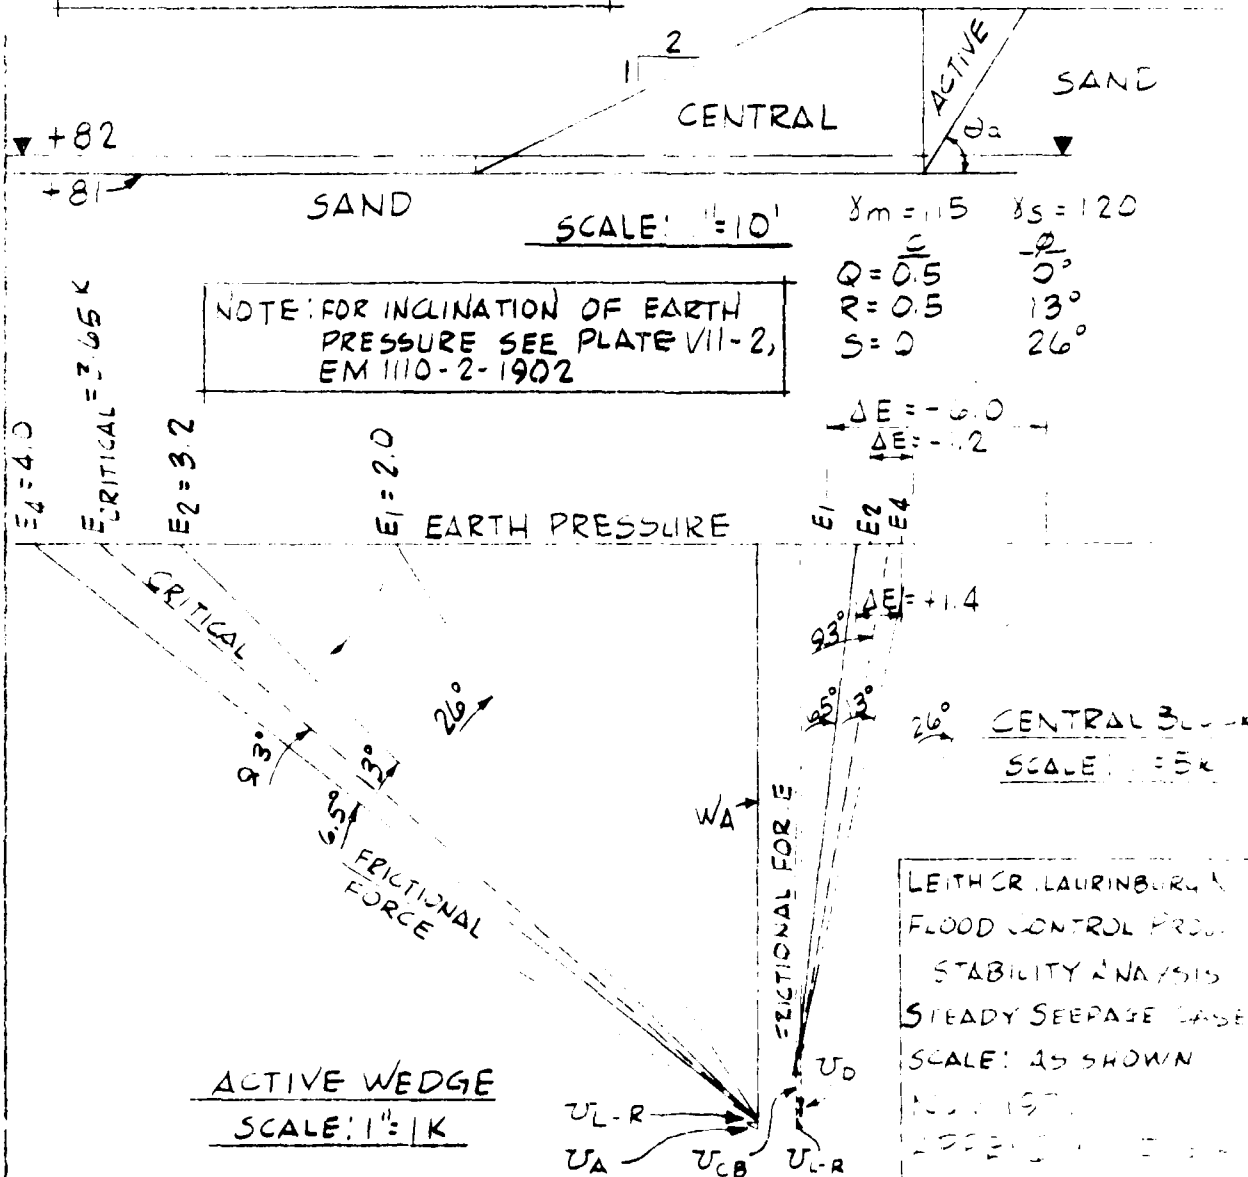 2
1
ACTIVE
SAND
CENTRAL
θa
+82
+81
SAND
SCALE: 1"=10'
γm = 115 γs = 120
C Φ
Q = 0.5 0°
R = 0.5 13°
S = 0 26°
NOTE: FOR INCLINATION OF EARTH
PRESSURE SEE PLATE VII-2,
EM 1110-2-1902
ΔE = -6.0
ΔE = -1.2
E4 = 4.0
ECRITICAL = 3.65 K
E2 = 3.2
E1 = 2.0
EARTH PRESSURE
E1
E2
E4
CRITICAL
ΔE = +1.4
93°
6.5°
13°
26°
26°
CENTRAL
SCALE
9.3°
13°
6.5°
FRICTIONAL
FORCE
WA
FRICTIONAL FOR E
LEITH CR. LAURINBURG
FLOOD CONTROL
STABILITY ANAYSIS
STEADY SEEPAGE CASE
SCALE: AS SHOWN
ACTIVE WEDGE
SCALE: 1"=1K
UL-R
UA
UCB
UL-R
UD